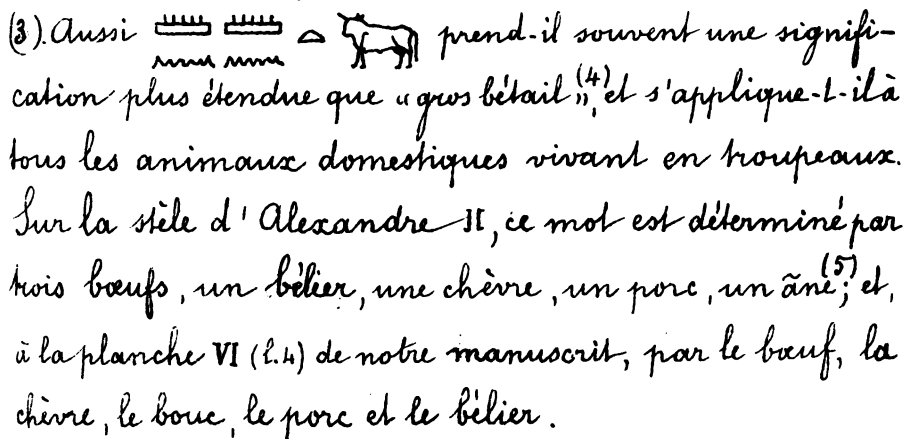 (3). Aussi 𓏠𓈖𓏠𓈖𓏏𓃒 prend-il souvent une signifi-
cation plus étendue que « gros bétail (4) », et s'applique-t-il à
tous les animaux domestiques vivant en troupeaux.
Sur la stèle d'Alexandre II, ce mot est déterminé par
trois bœufs, un bélier, une chèvre, un porc, un âne (5); et,
à la planche VI (l. 4) de notre manuscrit, par le bœuf, la
chèvre, le bouc, le porc et le bélier.